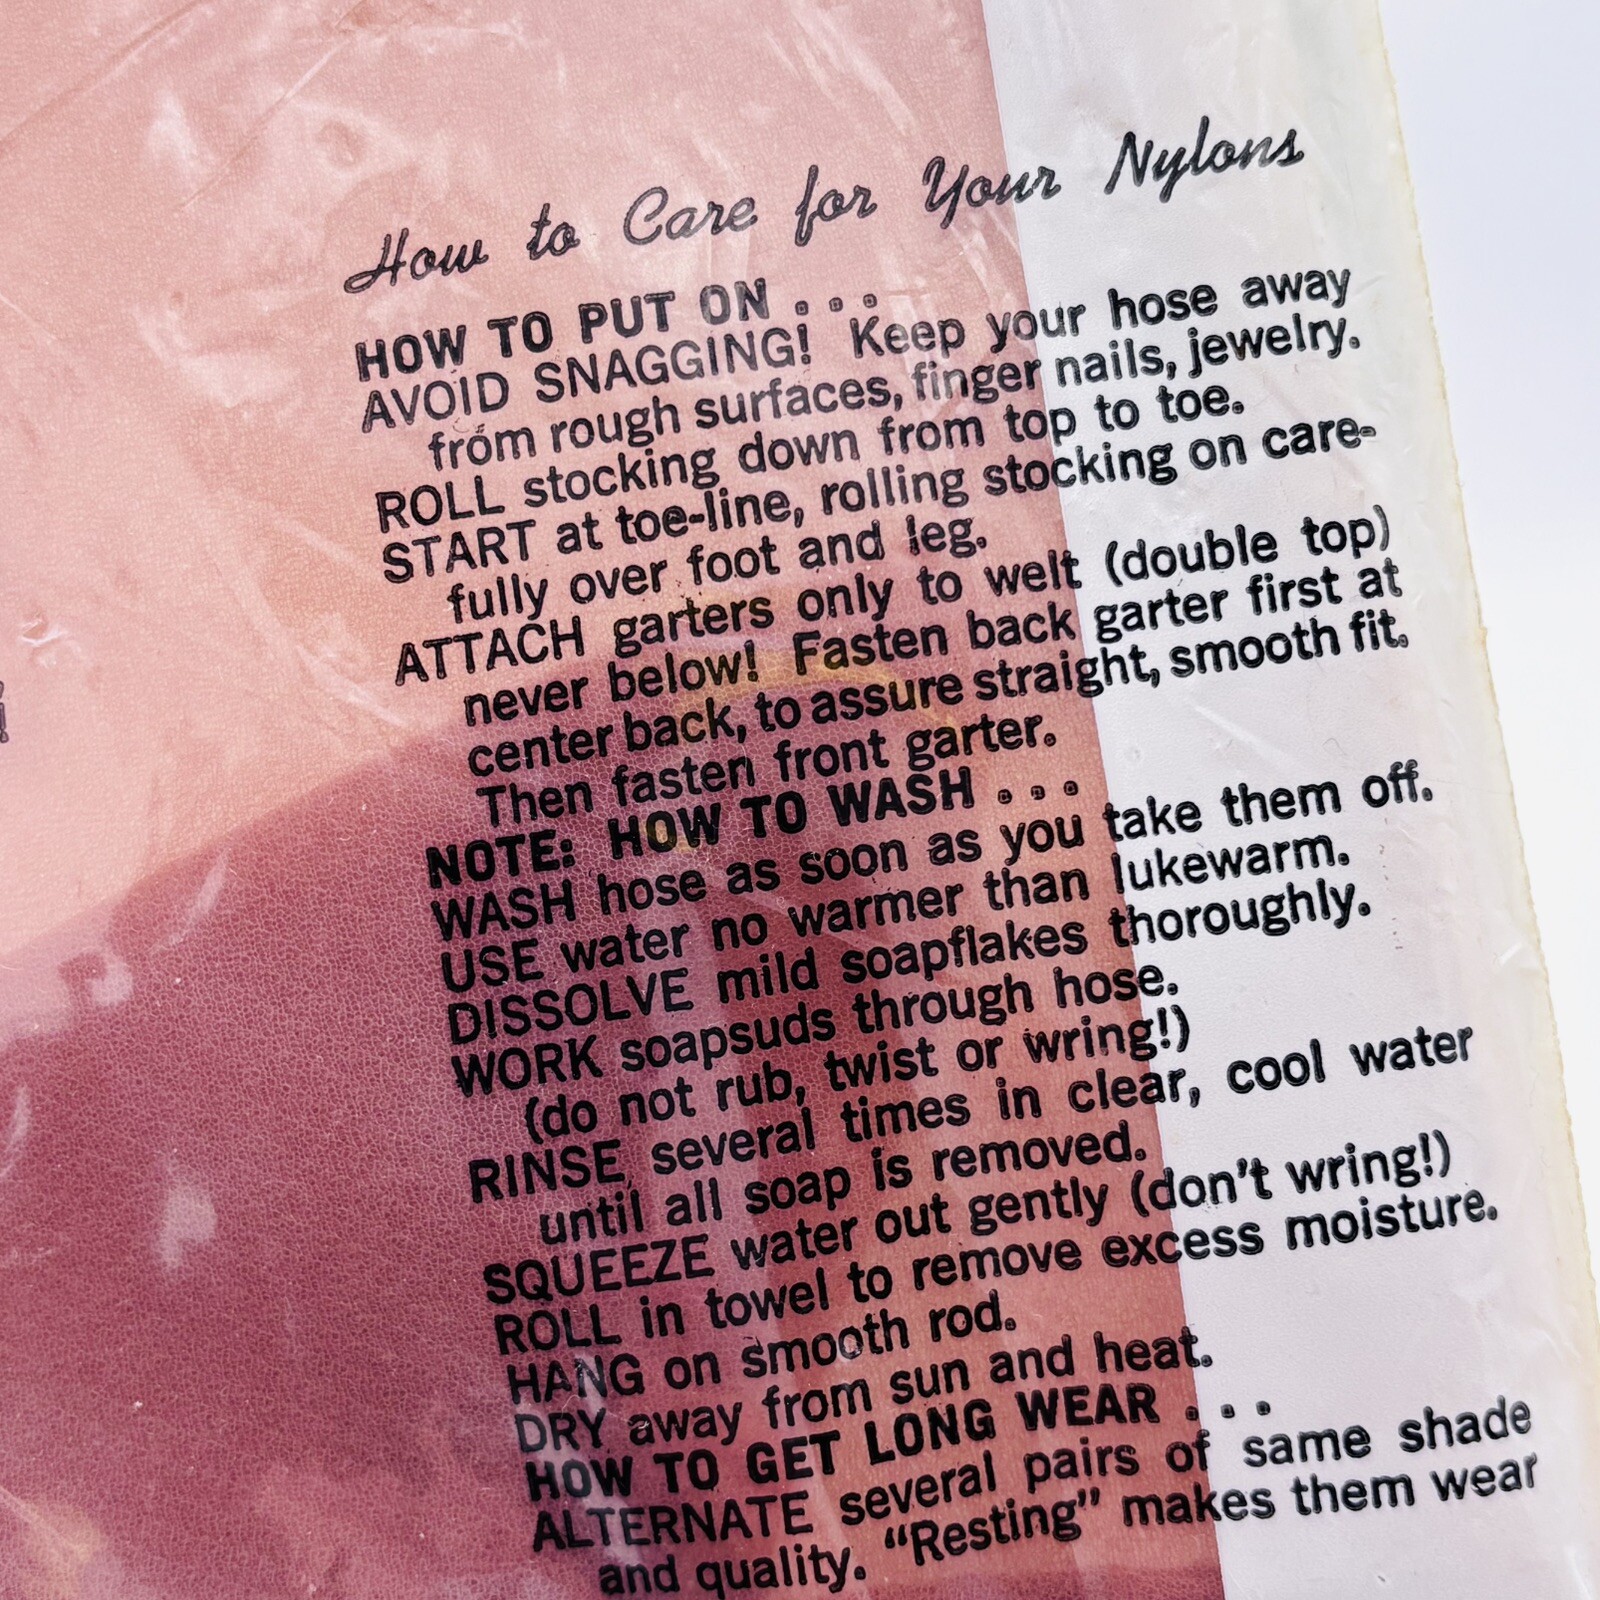 How to Care for Your Nylons
HOW TO PUT ON . . .
AVOID SNAGGING! Keep your hose away
from rough surfaces, finger nails, jewelry.
ROLL stocking down from top to toe.
START at toe-line, rolling stocking on care-
fully over foot and leg.
ATTACH garters only to welt (double top)
never below! Fasten back garter first at
center back, to assure straight, smooth fit.
Then fasten front garter.
NOTE: HOW TO WASH . . .
WASH hose as soon as you take them off.
USE water no warmer than lukewarm.
DISSOLVE mild soapflakes thoroughly.
WORK soapsuds through hose.
(do not rub, twist or wring!)
RINSE several times in clear, cool water
until all soap is removed.
SQUEEZE water out gently (don't wring!)
ROLL in towel to remove excess moisture.
HANG on smooth rod.
DRY away from sun and heat.
HOW TO GET LONG WEAR . . .
ALTERNATE several pairs of same shade
and quality. “Resting” makes them wear